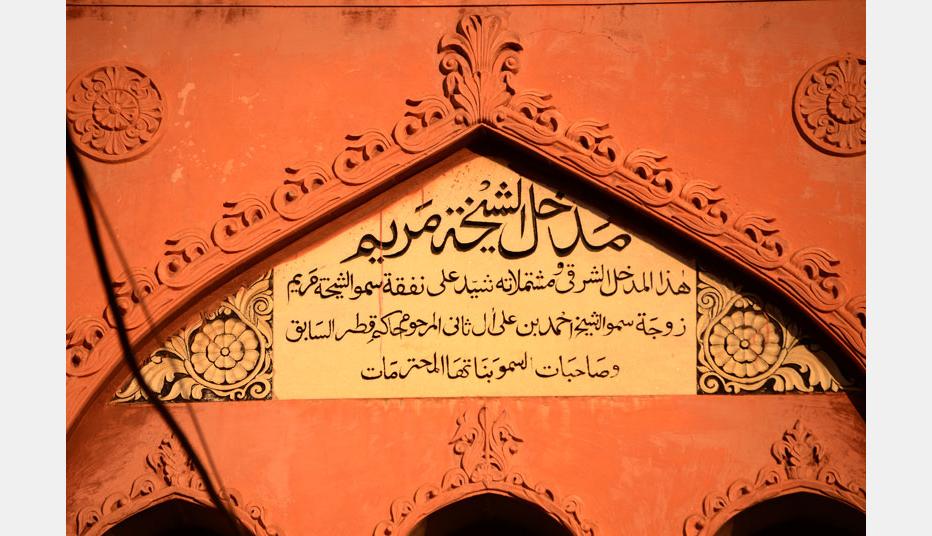 مَدخل الشيخة مَريم
هٰذا المدخل الشرقى ومشتملاته شيد على نفقة سمو الشيخة مَريم
زوجَة سمو الشيخ احمد بن على اٰل ثانى المرحوم حاكم قطر السَابق
وصَاحبات السمو بنَاتهَا المحترمَات